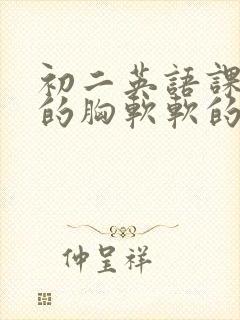 初二英語課
的胸軟軟的
仲呈祥